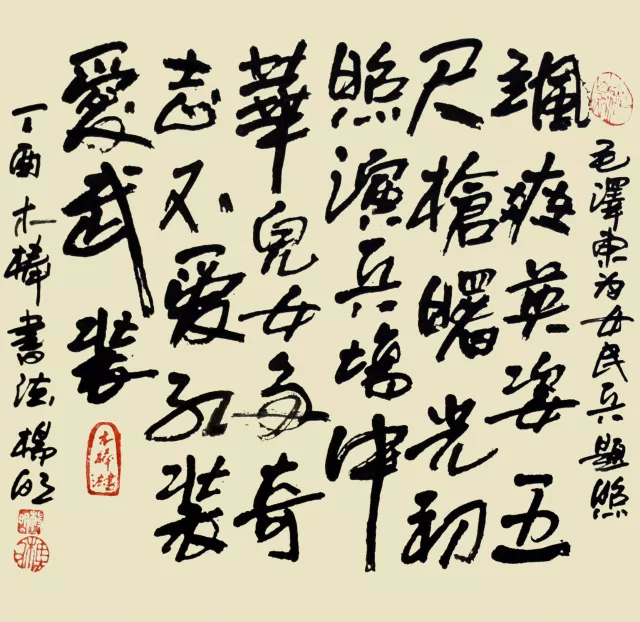 毛澤東为女民兵題照
颯爽英姿五
尺槍曙光初
照演兵場中
華兒女多奇
志不爱红装
爱武装
丁酉木樺書法楊明